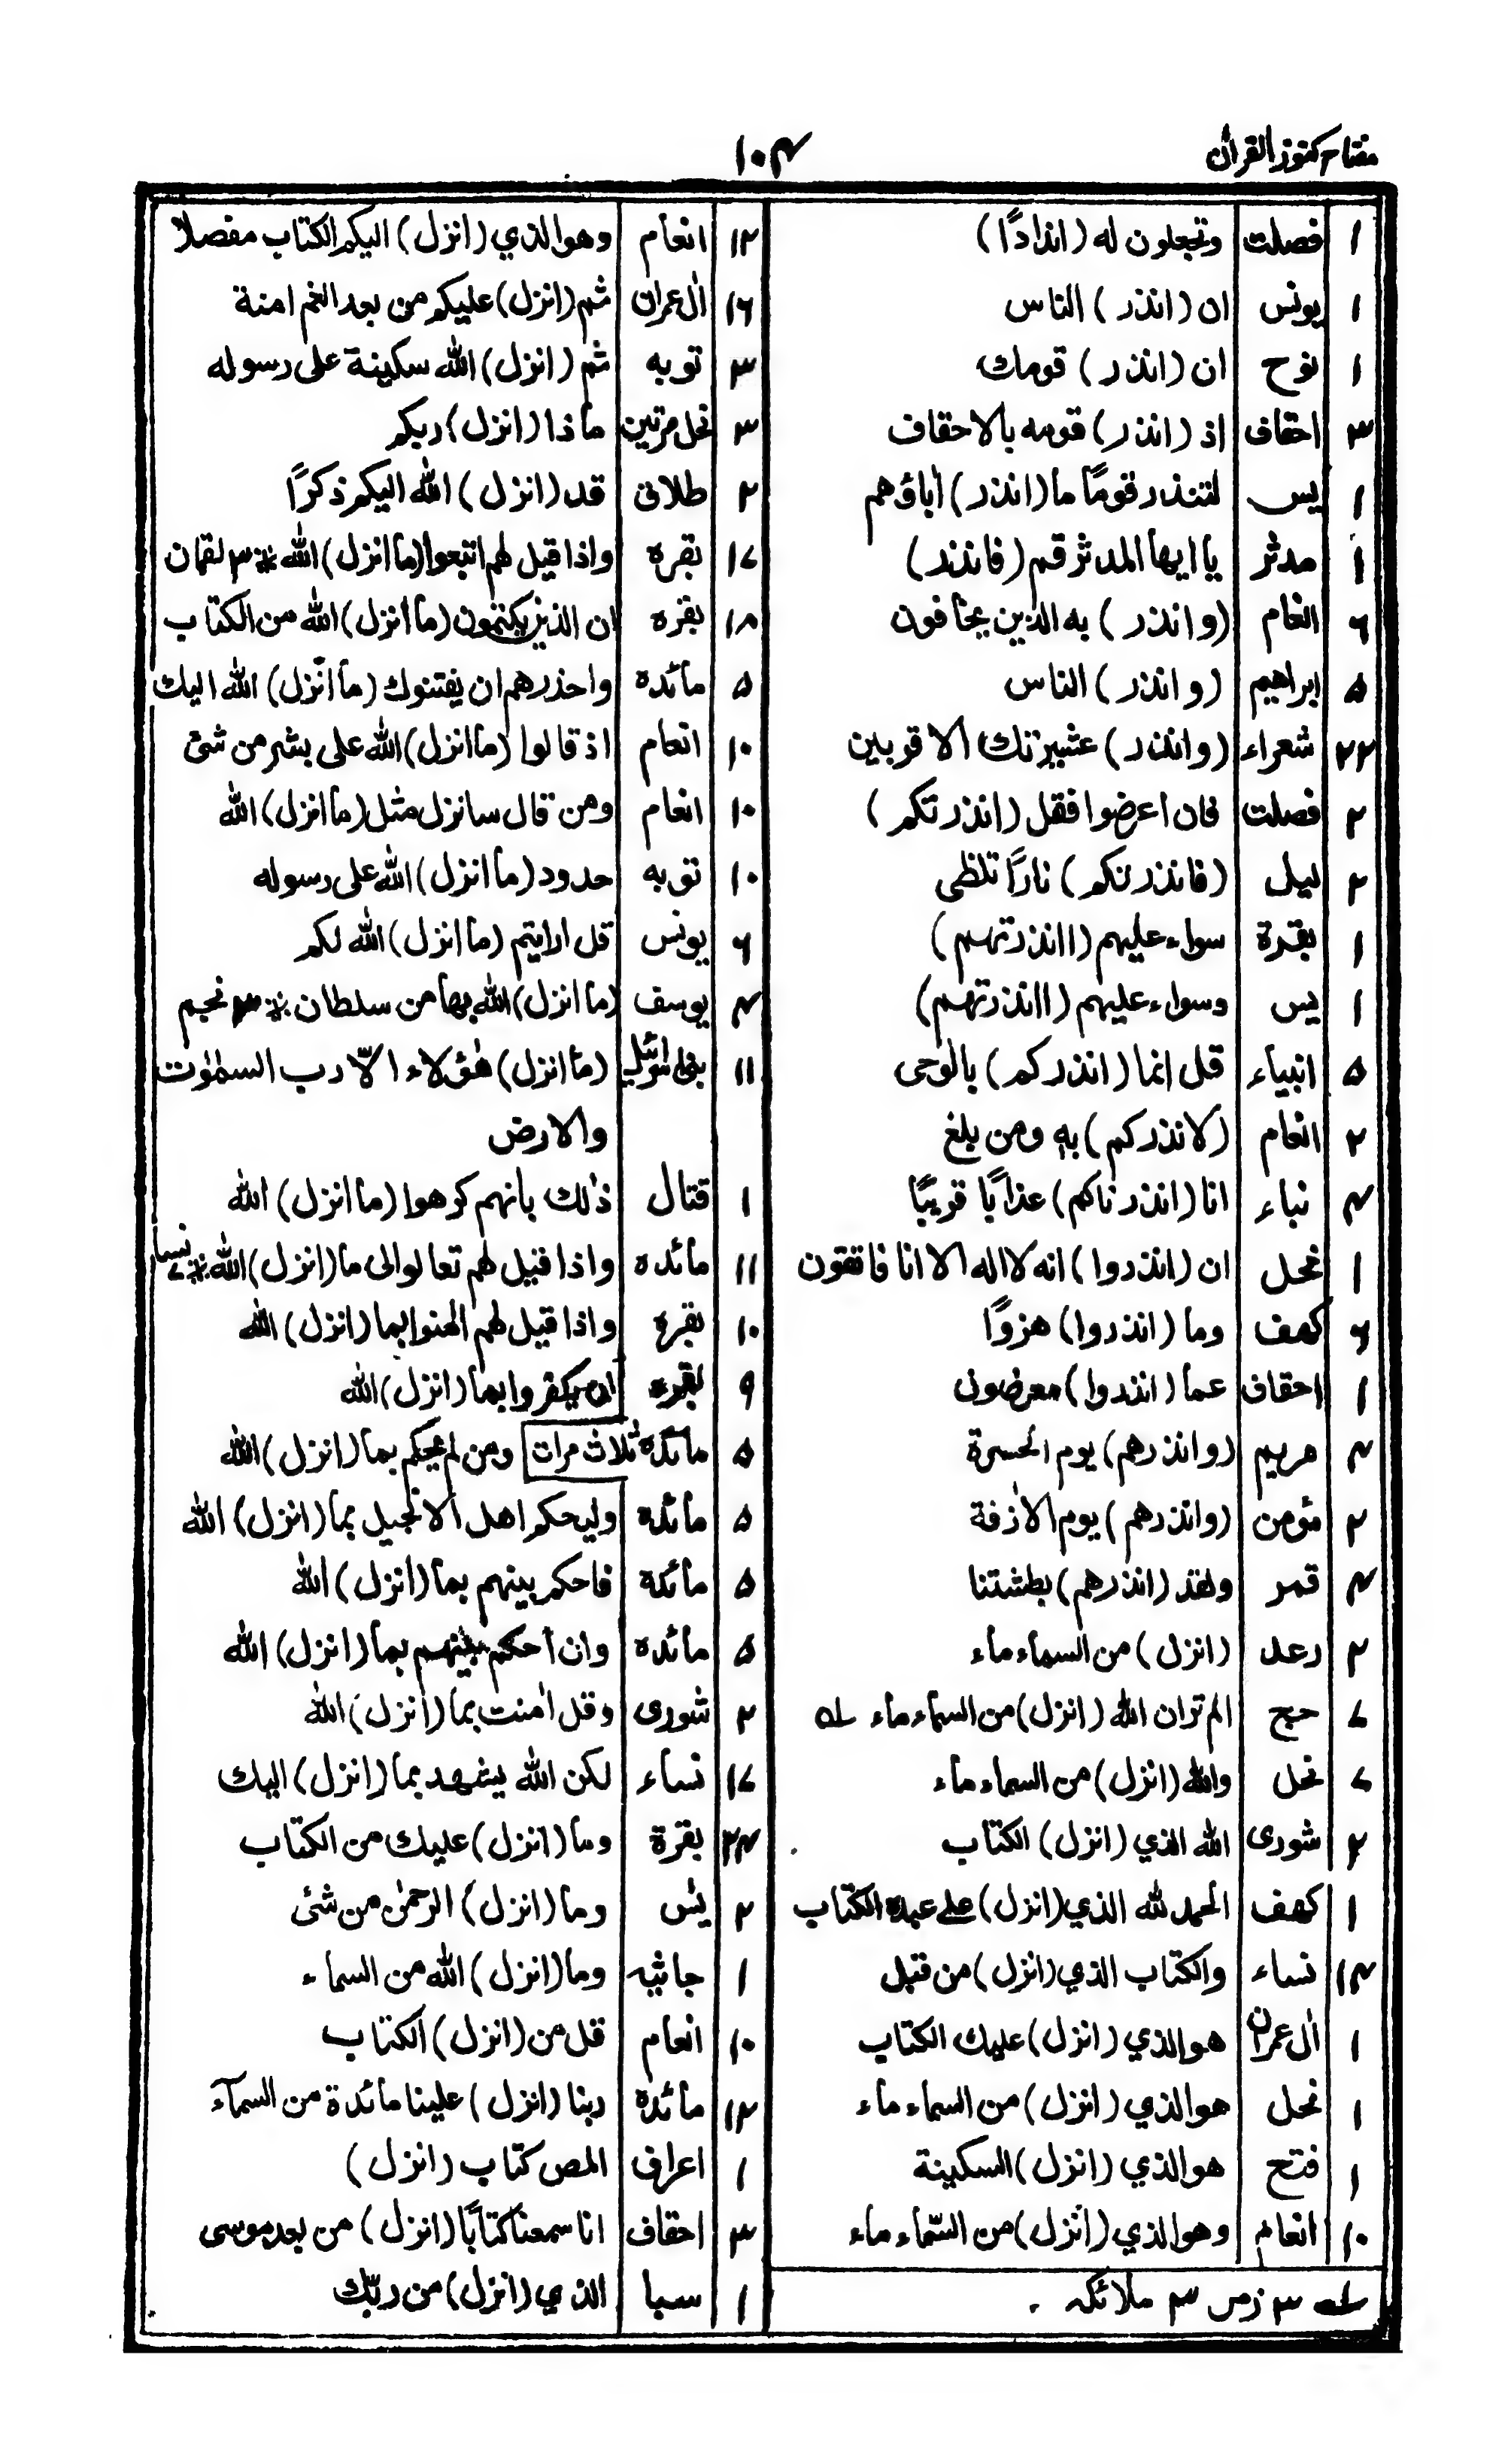 مفتاح کنوز القرآن
۱۰۴
۱ فصلت وتجعلون له (اندادًا)
۱ یونس ان (انذر) الناس
۱ نوح ان (انذر) قومك
۳ احقاف اذ (انذر) قومه بالاحقاف
۱ یس لتنذر قومًا ما (انذر) اٰباؤهم
۱ مدثر یا ایها المدثر قم (فانذر)
۶ انعام (وانذر) به الذین یخافون
۵ ابراهیم (وانذر) الناس
۲۲ شعراء (وانذر) عشیرتك الاقربین
۲ فصلت فان اعرضوا فقل (انذرتکم)
۲ لیل (فانذرتکم) نارًا تلظی
۱ بقرة سواء علیهم (اانذرتهم)
۱ یس وسواء علیهم (اانذرتهم)
۵ انبیاء قل انما (انذرکم) بالوحی
۲ انعام (لانذرکم) به ومن بلغ
۴ نباء انا (انذرناکم) عذابًا قریبًا
۱ نحل ان (انذروا) انه لا اله الا انا فاتقون
۶ کهف وما (انذروا) هزوًا
۱ احقاف عما (انذروا) معرضون
۴ مریم (وانذرهم) یوم الحسرة
۲ مؤمن (وانذرهم) یوم الاٰزفة
۴ قمر ولقد (انذرهم) بطشتنا
۲ رعد (انزل) من السماء ماء
۷ حج الم تران الله (انزل) من السماء ماء له
۷ نحل والله (انزل) من السماء ماء
۲ شوری الله الذي (انزل) الکتاب
۱ کهف الحمد لله الذي (انزل) علی عبده الکتاب
۱۴ نساء والکتاب الذي (انزل) من قبل
۱ اٰل عمران هو الذي (انزل) علیك الکتاب
۱ نحل هو الذي (انزل) من السماء ماء
۱ فتح هو الذي (انزل) السکینة
۱۰ انعام وهو الذي (انزل) من السّماء ماء
له ۳ زمر ۳ ملائکه
۱۲ انعام وهو الذي (انزل) الیکم الکتاب مفصلا
۱۶ اٰل عمران ثم (انزل) علیکم من بعد الغم امنة
۳ توبه ثم (انزل) الله سکینة علی رسوله
۳ نحل مرتین ماذا (انزل) ربکم
۲ طلاق قد (انزل) الله الیکم ذکرًا
۱۷ بقره واذا قیل لهم اتبعوا (ما انزل) الله ※ ۳ لقمان
۱۸ بقره ان الذین یکتمون (ما انزل) الله من الکتاب
۵ مائده واحذرهم ان یفتنوك (ما انزل) الله الیك
۱۰ انعام اذ قالوا (ما انزل) الله علی بشر من شئ
۱۰ انعام ومن قال سانزل مثل (ما انزل) الله
۱۰ توبه حدود (ما انزل) الله علی رسوله
۶ یونس قل ارایتم (ما انزل) الله لکم
۴ یوسف (ما انزل) الله بها من سلطان ※ نجم
۱۱ بنی اسرائیل (ما انزل) هٰؤلاء الّا رب السمٰوٰت
والارض
۱ قتال ذٰلك بانهم کرهوا (ما انزل) الله
۱۱ مائده واذا قیل لهم تعالوا الی ما (انزل) الله ※ نساء
۱۰ بقره واذا قیل لهم اٰمنوا بما (انزل) الله
۹ بقره ان یکفروا بما (انزل) الله
۵ مائده ثلاث مرات ومن لم یحکم بما (انزل) الله
۵ مائده ولیحکم اهل الانجیل بما (انزل) الله
۵ مائدة فاحکم بینهم بما (انزل) الله
۵ مائده وان احکم بینهم بما (انزل) الله
۲ شوری وقل اٰمنت بما (انزل) الله
۱۷ نساء لکن الله یشهد بما (انزل) الیك
۲۴ بقرة وما (انزل) علیك من الکتاب
۲ یٰس وما (انزل) الرحمٰن من شئ
۱ جاثیه وما (انزل) الله من السماء
۱۰ انعام قل من (انزل) الکتاب
۱۲ مائده ربنا (انزل) علینا مائدة من السمآء
۱ اعراف المص کتاب (انزل)
۳ احقاف انا سمعنا کتابًا (انزل) من بعد موسی
۱ سبا الذي (انزل) من ربّك